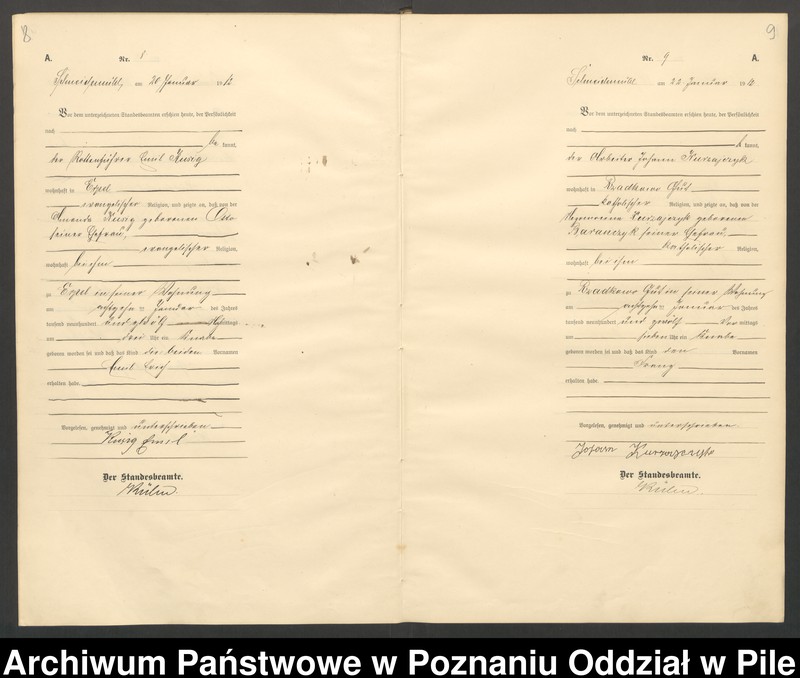 8
A.
Nr. 8
Schneidemühl, am 20 Januar 1912
Vor dem unterzeichneten Standesbeamten erschien heute, der Persönlichkeit
nach
be kannt,
der Rottenführer Emil
wohnhaft in
evangelischer Religion, und zeigte an, daß von der
Amanda geborenen
seiner Ehefrau,
evangelischer Religion,
wohnhaft bei ihm
zu in seiner Wohnung
am Januar des Jahres
tausend neunhundert und zwölf mittags
um drei Uhr ein Knabe
geboren worden sei und daß das Kind die beiden Vornamen
Emil
erhalten habe.
Vorgelesen, genehmigt und unterschrieben
Emil
Der Standesbeamte.
9
Nr. 9
A.
Schneidemühl am 22 Januar 1912
Vor dem unterzeichneten Standesbeamten erschien heute, der Persönlichkeit
nach
be kannt,
der Arbeiter Johann
wohnhaft in Gut
katholischer Religion, und zeigte an, daß von der
geborenen
seiner Ehefrau,
katholischer Religion,
wohnhaft bei ihm
zu Gut in seiner Wohnung
am Januar des Jahres
tausend neunhundert und zwölf Vor mittags
um sieben Uhr ein Knabe
geboren worden sei und daß das Kind den Vornamen
Franz
erhalten habe.
Vorgelesen, genehmigt und unterschrieben
Johann
Der Standesbeamte.
Archiwum Państwowe w Poznaniu Oddział w Pile